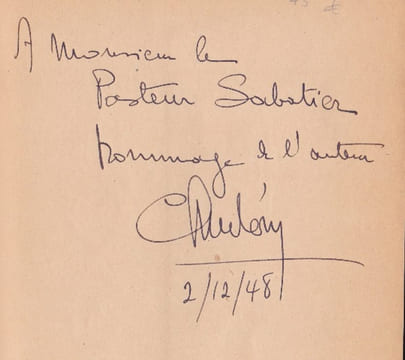 A Monsieur le
Pasteur Sabatier
hommage de l'auteur
2/12/48